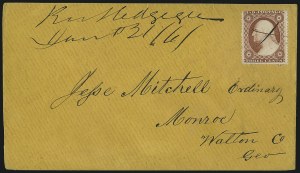 Rutledge Geo
Jan 31/61
Jesse Mitchell Ordinary
Monroe
Walton Co
Geo